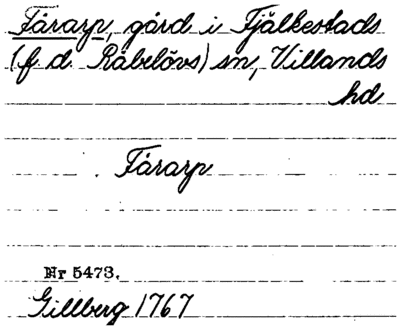 Fårarp, gård i Fjälkestads
(f d. Råbelövs) sn, Villands
hd
Fårarp
Nr 5473.
Gillberg 1767